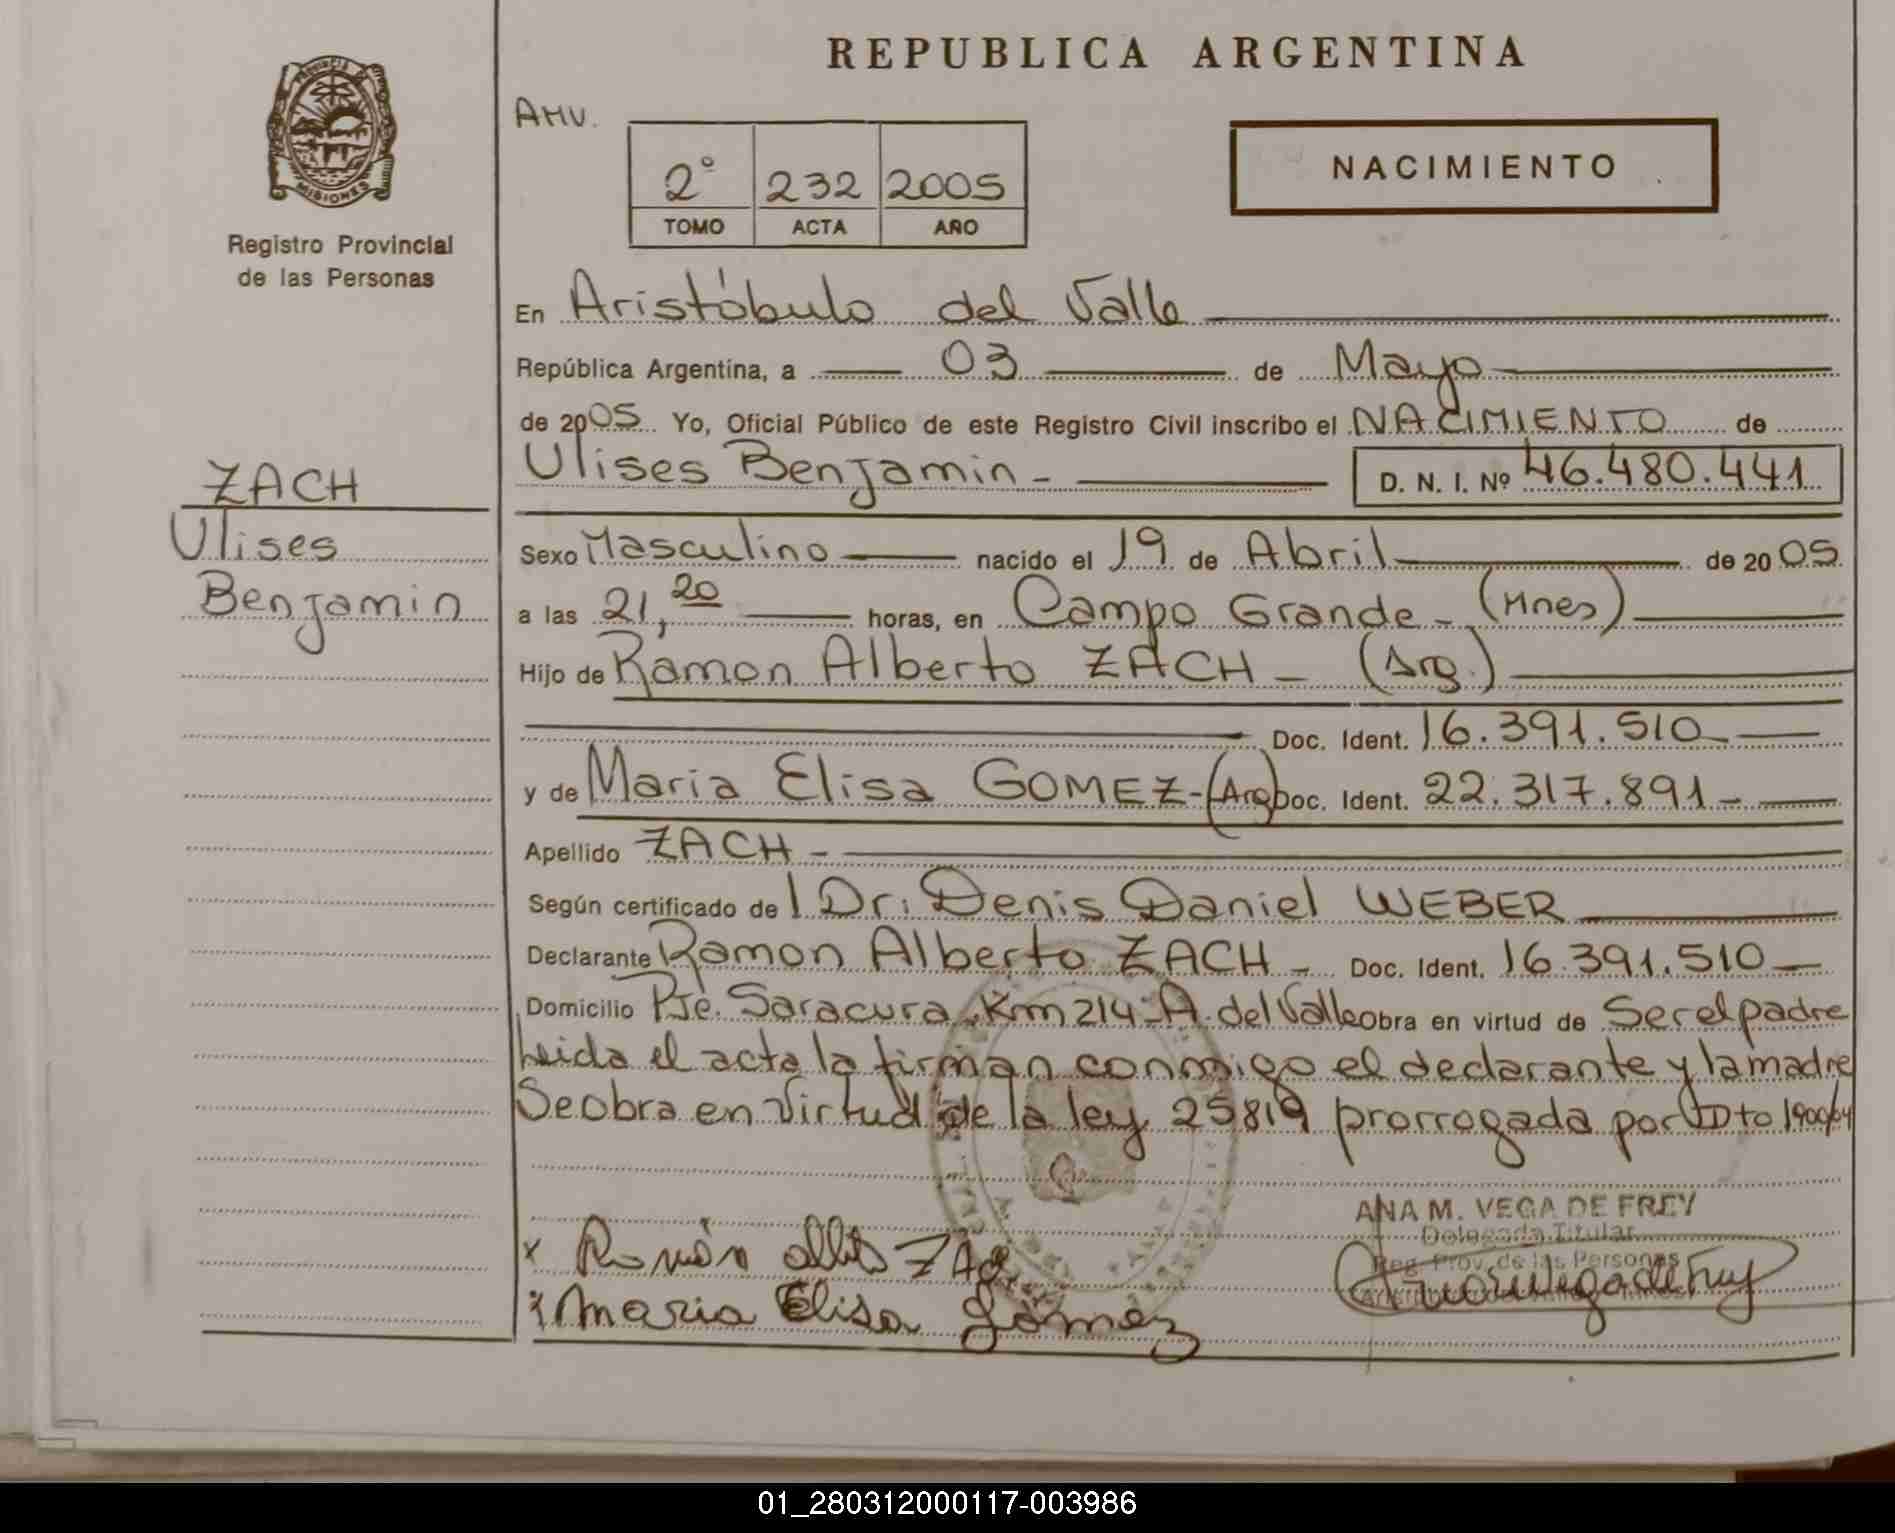 REPUBLICA ARGENTINA
PROVINCIA DE
MISIONES
Registro Provincial
de las Personas
AMV.
2º 232 2005
TOMO ACTA AÑO
NACIMIENTO
En Aristóbulo del Valle
República Argentina, a 03 de Mayo
de 2005 Yo, Oficial Público de este Registro Civil inscribo el NACIMIENTO de
Ulises Benjamin - D. N. I. Nº 46.480.441
ZACH
Ulises
Benjamin
Sexo Masculino nacido el 19 de Abril de 2005
a las 21,20 horas, en Campo Grande - (Mnes)
Hijo de Ramon Alberto ZACH - (Arg.)
Doc. Ident. 16.391.510 -
y de Maria Elisa GOMEZ - (Arg) Doc. Ident. 22.317.891 -
Apellido ZACH -
Según certificado de l Dr. Denis Daniel WEBER
Declarante Ramon Alberto ZACH - Doc. Ident. 16.391.510 -
Domicilio Pje. Saracura - Km 214 - A. del Valle obra en virtud de Ser el padre
Leida el acta la firman conmigo el declarante y la madre
Se obra en virtud de la ley 25819 prorrogada por Dto 1900/04
ANA M. VEGA DE FREY
Delegada Titular
Reg. Prov. de las Personas
x Ramón ZACH
x Maria Elisa Gómez
01_280312000117-003986